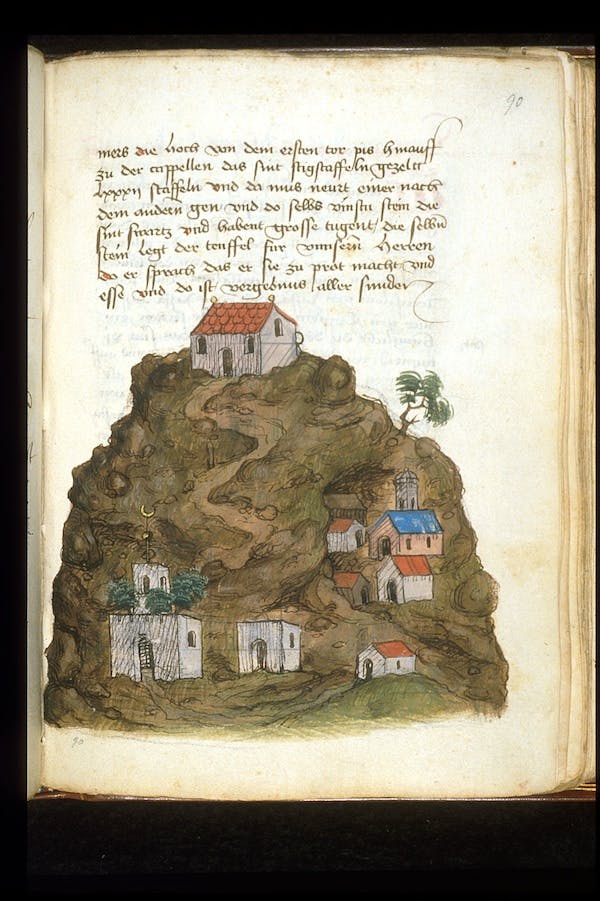 90
mers die hoch von dem ersten tor pis hinauff
zu der cappellen das sint stigstaffeln gezelt
lxxxii staffeln vnd da mus neurt einer nach
dem andern gen vnd do selbs vinstu stein die
sint swartz vnd habent grosse tugent / die selbn
stein legt der teuffel fur vnnsern herren
do er sprach das er sie zu prot macht vnd
esse vnd do ist vergebnus aller sunder
90